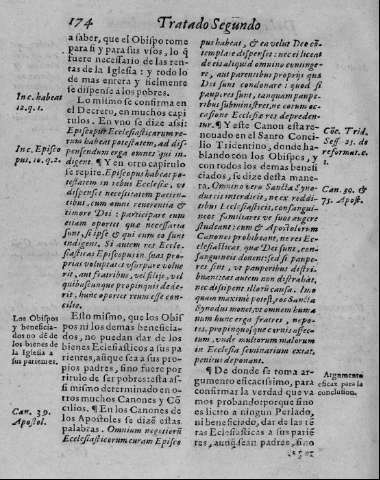 174
Tratado Segundo
a saber, que el Obispo tome
para si y para sus vsos, lo q̃
fuere necessario de las ren-
tas de la Iglesia : y todo lo
de mas entera y fielmente
se dispense a los pobres.
Inc. habeat
12. q. 1.
Lo mismo se confirma en
el Decreto, en muchos capi
tulos. En vno se dize assi:
Episcopus Ecclesiasticarum re-
rum habeat potestatem, ad dis-
pensandum erga omnes qui in-
digent. ¶ Y en otro capitulo
Inc. Episco
pus. 10. q. 2.
se repite. Episcopus habeat po-
testatem in rebus Ecclesiæ, vt
dispenset necessitatem patien-
tibus, cum omni reuerentia &
timore Dei : participare eum
etiam oportet que necessaria
sunt, si ipse & qui cum eo sunt
indigent. Si autem res Eccle-
siasticas Episcopus in suas pro-
prias voluptates vsurpare volue
rit, aut fratribus, vel filijs, vel
quibuscunque propinquis dede-
rit, hunc oportet reum esse con-
cilio.
Los Obispos
y beneficia-
dos no dẽ de
los bienes de
la Iglesia a
sus parientes.
Esto mismo, que los Obis
pos ni los demas beneficia-
dos, no puedan dar de los
bienes Ecclesiasticos a sus pa
rientes, aunque sea a sus pro-
pios padres, sino fuere por
titulo de ser pobres: esta assi
mismo determinado en o-
tros muchos Canones y Cõ
cilios. ¶ En los Canones de
Can. 39.
Apostol.
los Apostoles se dizẽ estas
palabras. Omnium negotiorũ
Ecclesiasticorum curam Episco
pus habeat, & ea velut Deo cõ
template dispenset: nec ei liceat
de eis aliquid omnino continge-
re, aut parentibus proprijs que
Dei sunt condonare : quod si
pauperes sunt, tanquam paupe-
ribus subministret, ne eorum oc
cessione Ecclesiæ res depreden-
tur. ¶ Y este Canon esta re-
nouado en el Santo Conci-
Cõc. Trid.
Sess. 25. de
reformat. c.
1.
lio Tridentino, donde ha-
blando con los Obispos, y
con todos los demas benefi
ciados, se dize desta mane-
ra. Omnino vero Sancta Syno-
Can. 39. &
75. Apost.
dus eis interdicit, ne ex reddi-
tibus Ecclesiasticis, consangui-
neos familiares ve suos augere
studeant : cum & Apostolorum
Canones prohibeant, ne res Ec-
clesiasticas, quæ Dei sunt, con-
sanguineis donent: sed si paupe-
res sint, vt pauperibus distri-
buant: eas autem non distrahãt,
nec dissipent illorũ causa. Imo
quam maximè potest, eos Sancta
Synodus monet, vt omnem huma
num hunc erga fratres, nepotes,
propinquosque carnis affec-
tum, vnde multorum malorum
in Ecclesia seminarium extat,
penitus deponant.
¶ De donde se toma ar-
Argumento
eficaz para la
conclusion.
gumento eficacissimo, para
confirmar la verdad que va
mos probando: porque si no
es licito a ningun Perlado,
ni beneficiado, dar de las rẽ
tas Ecclesiasticas a sus parie
tes, aunq̃ sean padres, sino